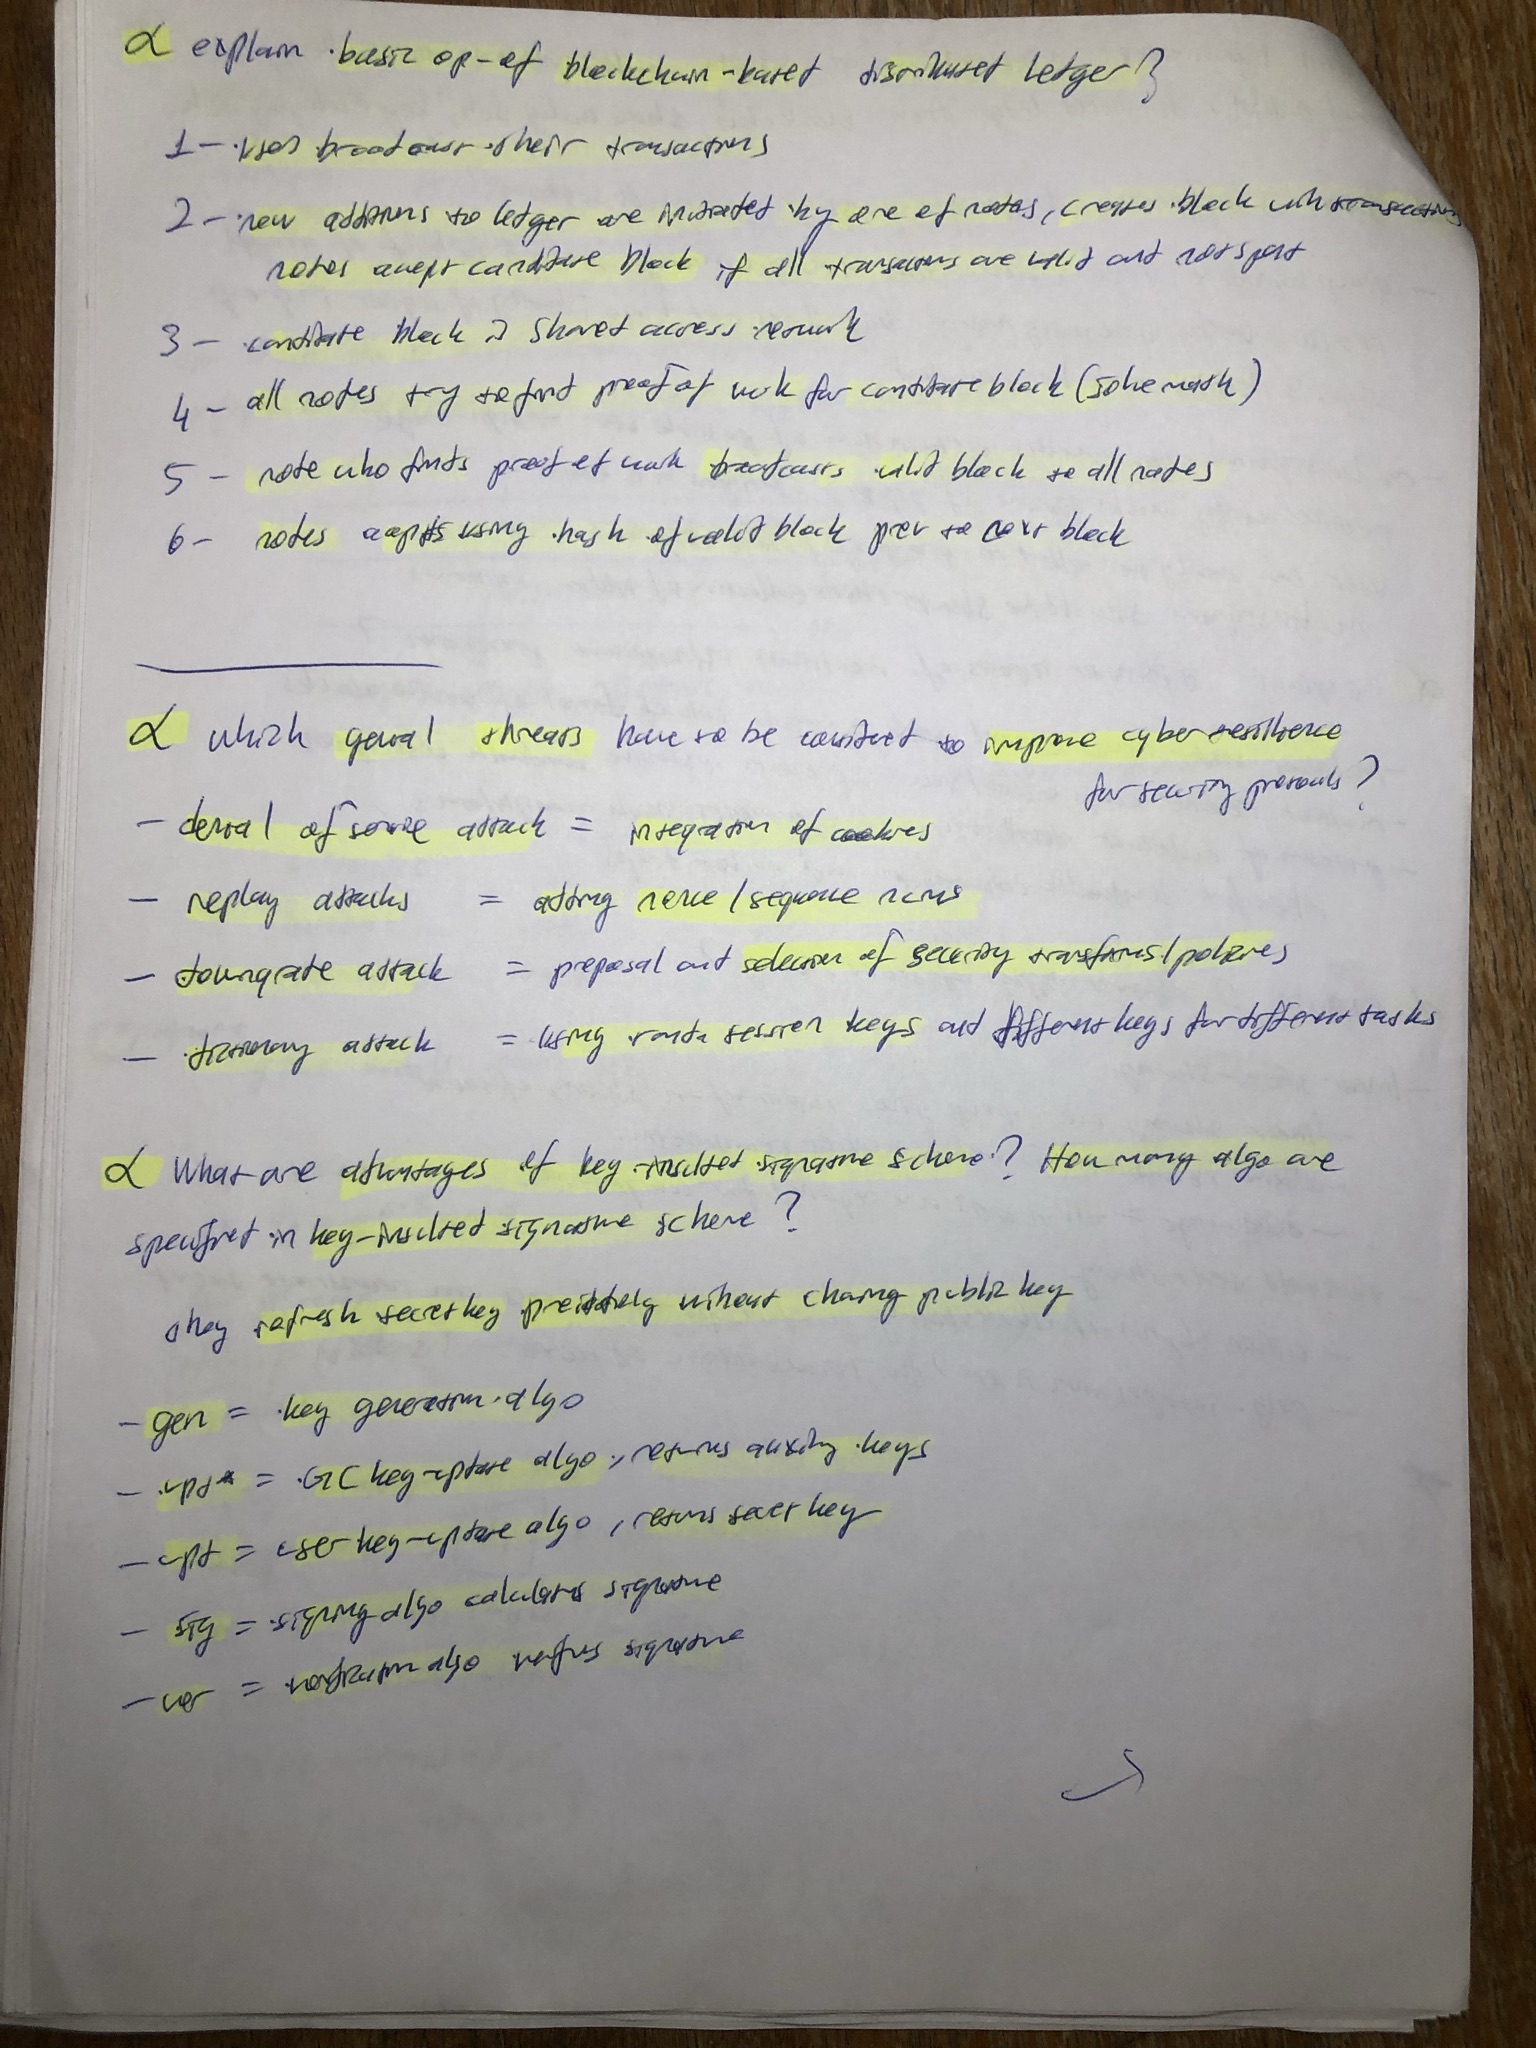 α explain basic op-of blockchain-based distributed ledger?
1- users broadcast their transactions
2- new additions to ledger are initiated by one of nodes, creates block with transactions
nodes accept candidate block if all transactions are valid and not spent
3- candidate block is shared across network
4- all nodes try to find proof of work for candidate block (solve math)
5- node who finds proof of work broadcasts valid block to all nodes
6- nodes accepts using hash of valid block prev to next block
α which general threats have to be considered to improve cyber resilience
for security protocols?
- denial of service attack = integration of cookies
- replay attacks = adding nonce / sequence nums
- downgrade attack = proposal and selection of security transforms / policies
- dictionary attack = using session keys and different keys for different tasks
α What are advantages of key-insulated signature scheme? How many algo are
specified in key-insulated signature scheme?
they refresh secret key without changing public key
- gen = key generation algo
- upd* = key-update algo, returns auxiliary keys
- upd = user key-update algo, returns secret key
- sig = signing algo calculates signature
- ver = verification algo verifies signature